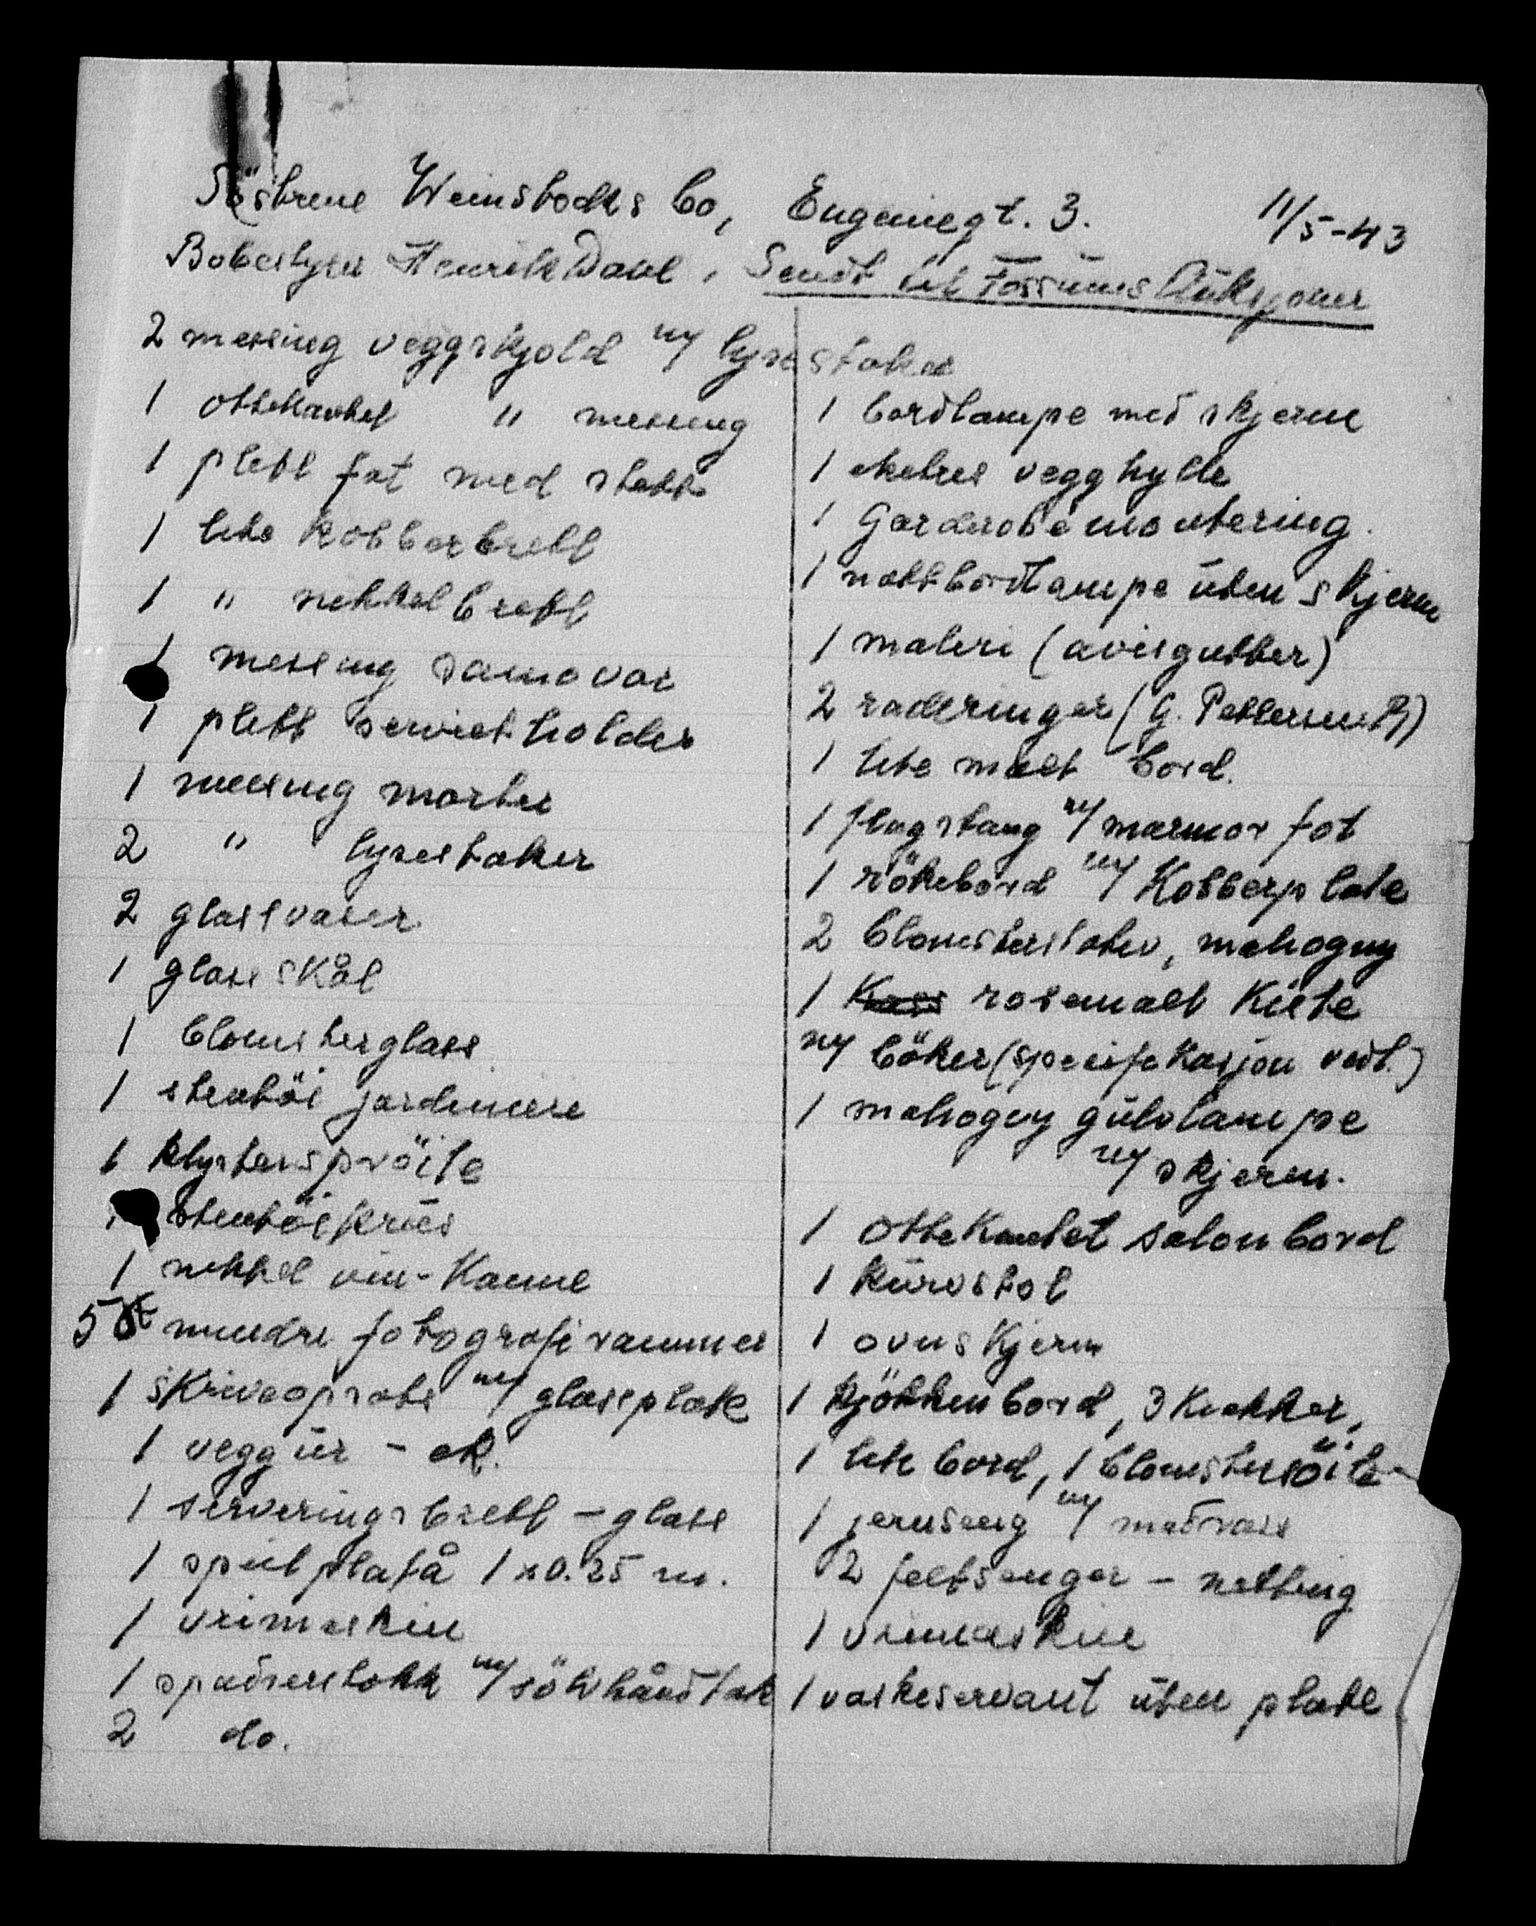 Söstrene Weinstocks bo, Eugeniegt. 3. 11/5-43
Bobestyrer Henrik Dahl, Sendt til Fossums Auksjoner
2 messing veggskjold m/ lysestaker
1 ottekantet " messing
1 plett fat med stett
1 lite kobberbrett
1 " nikkelbrett
1 messing samovar
1 plett serviettholder
1 messing morter
2 " lysestaker
2 glassvaser
1 glasskål
1 blomsterglass
1 stentöi jardiniere
1 klysterspröite
1 stentöikrus
1 nikkel vin-kanne
5 mindre fotografirammer
1 skriveoprats m/ glassplate
1 veggur - ek.
1 serveringsbrett - glass
1 speilplatå 1x0.25 m.
1 vrimaskin
1 spaserstokk m/ sölvhåndtak
2 do.
1 bordlampe med skjerm
1 eketres vegghylle
1 Garderobemontering.
1 nattbordlampe uten skjerm
1 maleri (avisgutter)
2 raderinger (G. Pettersen)
1 lite malt bord.
1 flagstang m/ marmor fot
1 rökebord m/ Kobberplate
2 blomsterstativ, mahogny
1 rosemalt kiste
m/ böker (spesifikasjon vedl.)
1 mahogny gulvlampe
m/ skjerm.
1 ottekantet salonbord
1 kurvstol
1 ovnskjerm
1 kjökkenbord, 3 krakker,
1 lite bord, 1 blomstersöile
1 jernseng m/ madrass
2 feltsenger - netting
1 vrimaskin
1 vaskeservant uten plate